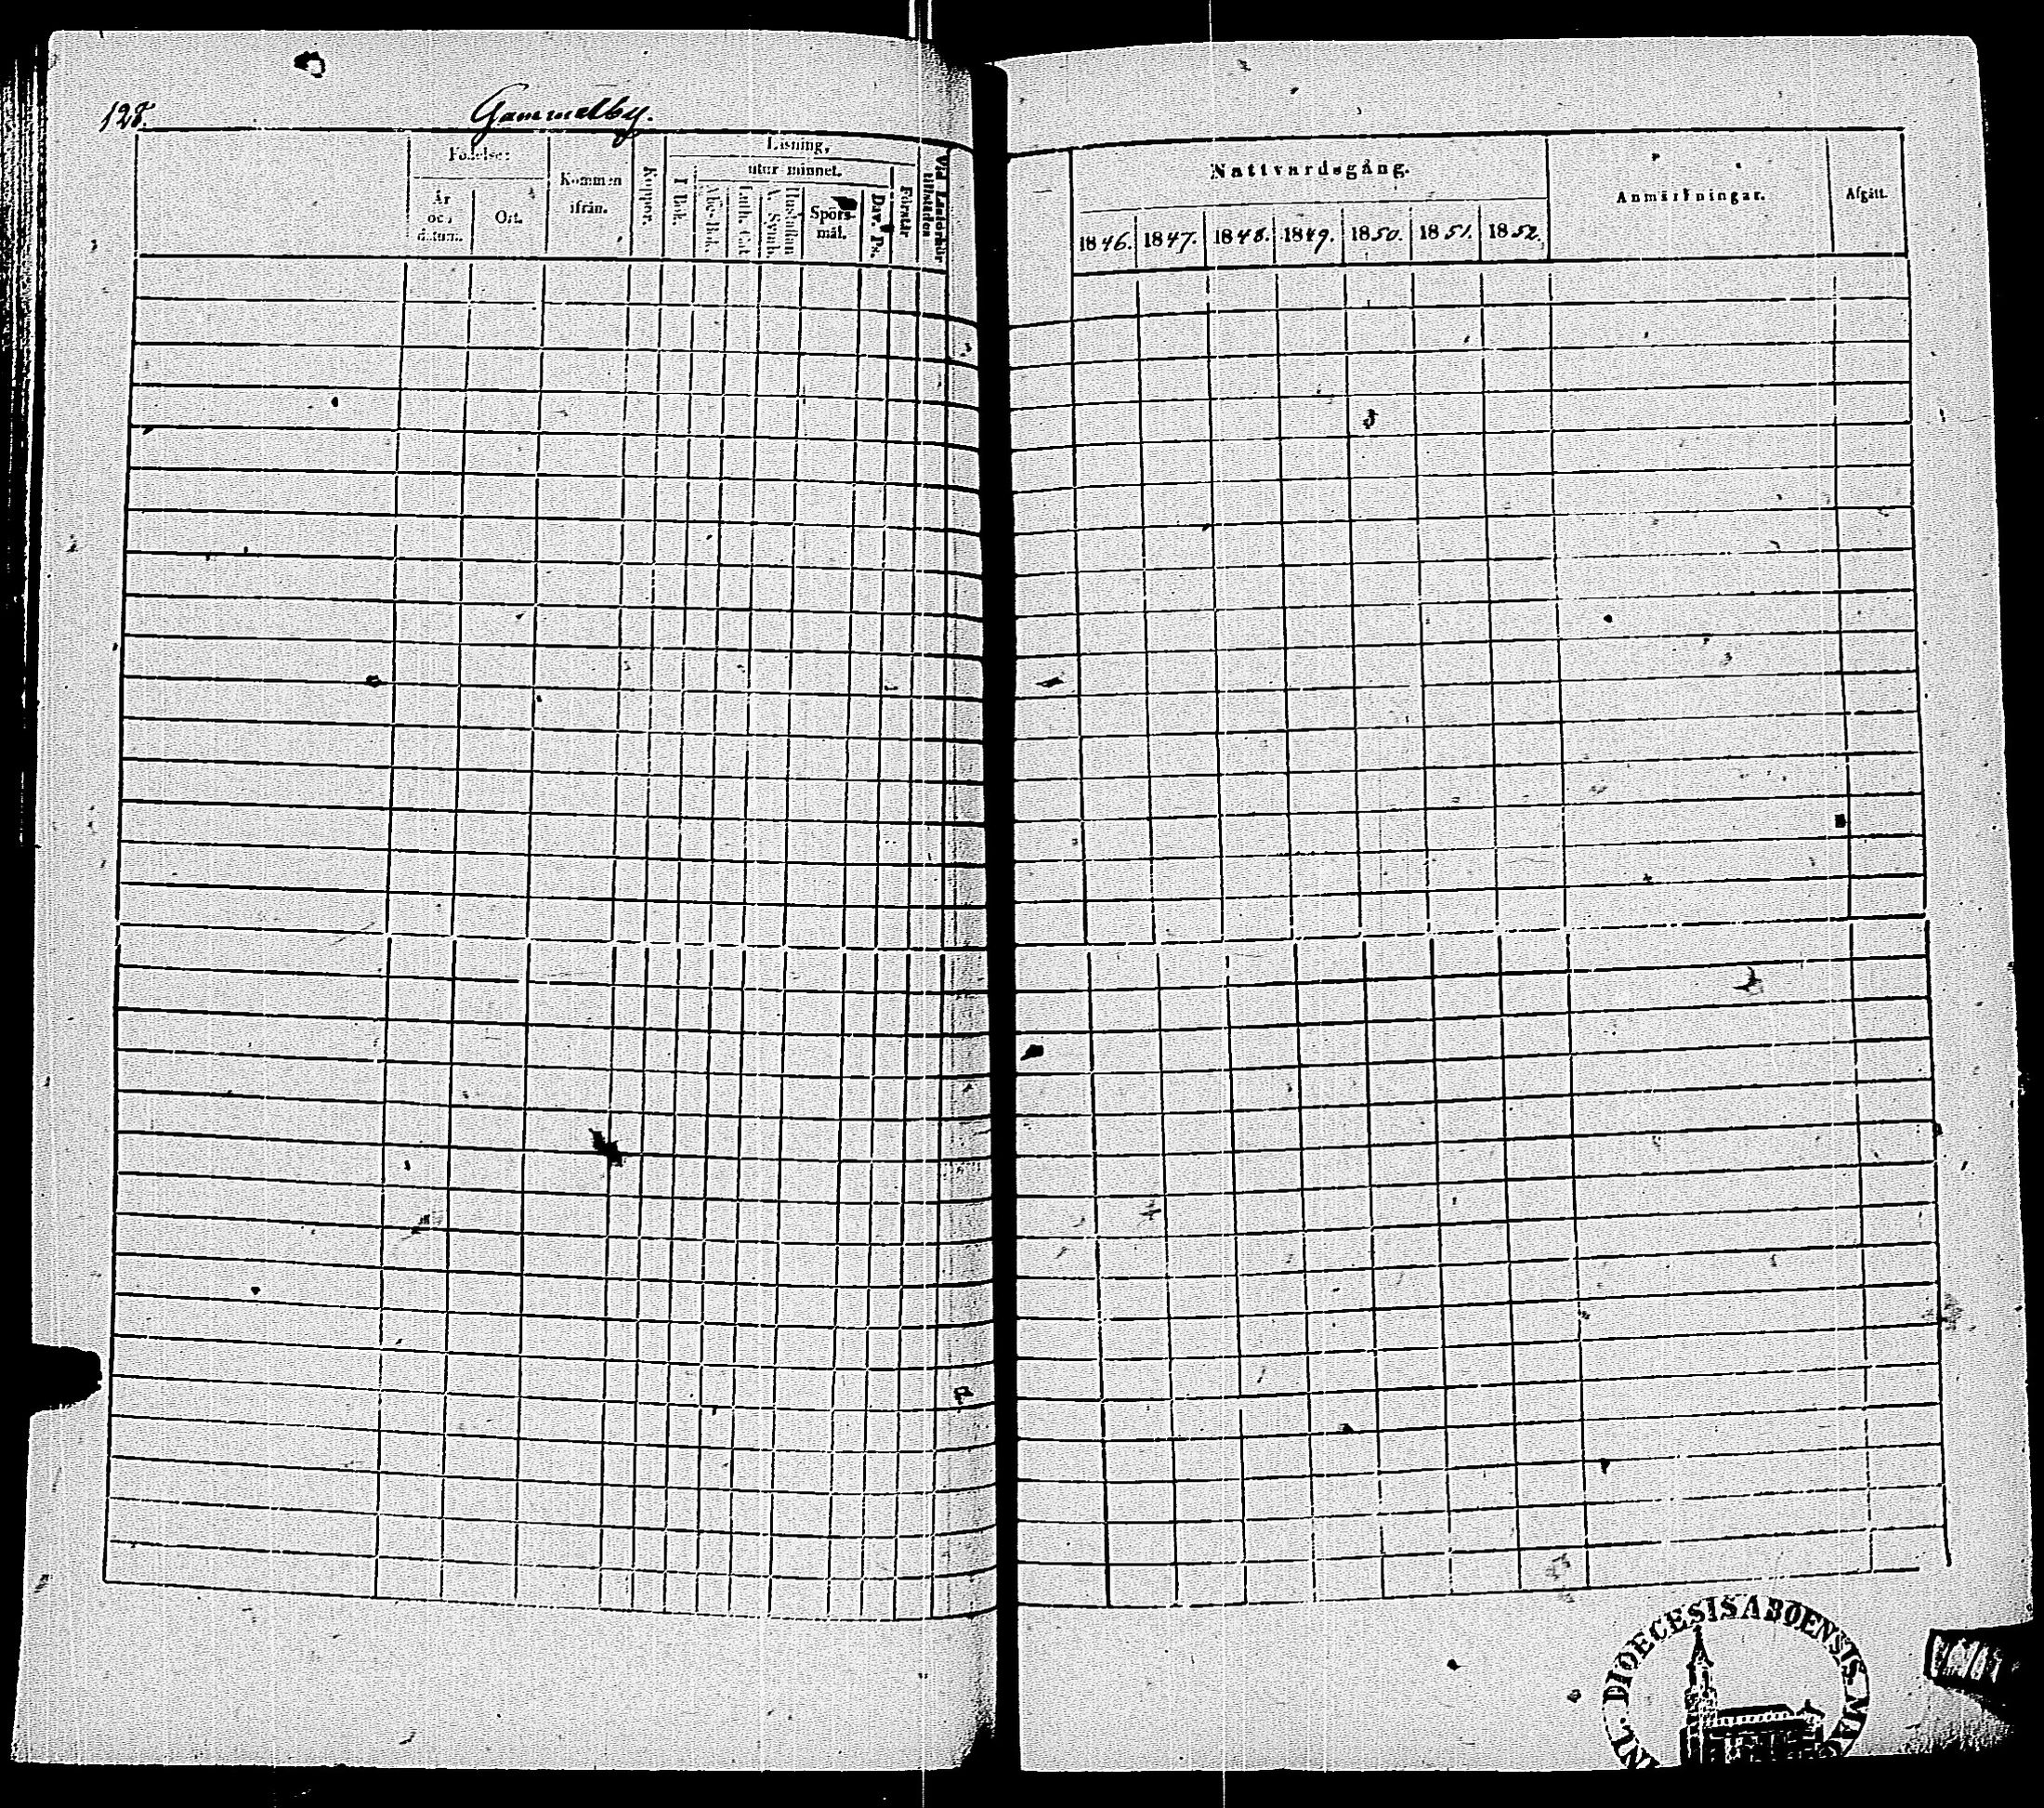 128.
Gammelby.
Födelse:
År och datum.
Ort.
Kommen ifrån.
Koppor.
Läsning,
utur minnet.
I Bok.
Abc-Bok.
Luth. Cat.
A. Symb.
Hustaflan
Spörs-mål.
Dav. Ps.
Förstår
Vid Läsförhör tillstädes
Nattvardsgång.
1846. 1847. 1848. 1849. 1850. 1851. 1852.
Anmärkningar.
Afgått.
DIOECESIS ABOENSIS